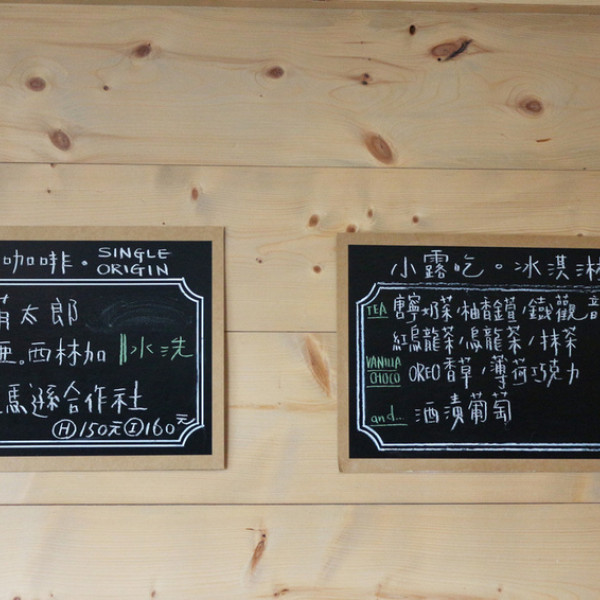 咖啡。SINGLE ORIGIN
太郎
亞。西林加 水洗
馬遜合作社
Ⓗ150元Ⓘ160元
小露吃。冰淇淋
TEA 奶茶/柚香 /鐵觀音
紅烏龍茶/烏龍茶/抹茶
VANILLA CHOCO OREO香草/薄荷巧克力
and... 酒漬葡萄